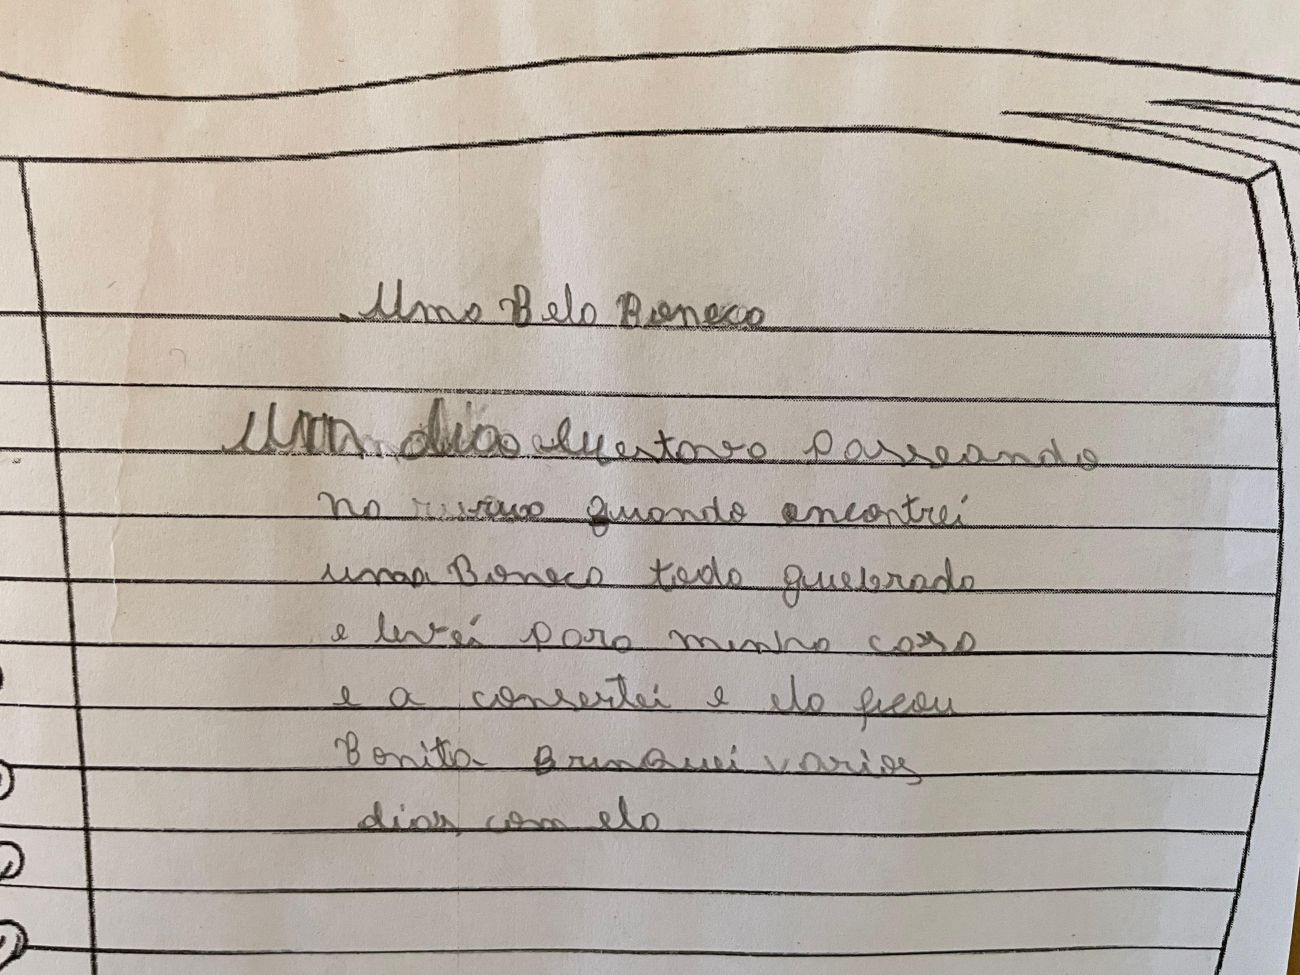 Uma Bela Boneca
Um dia eu estava passeando
na quando encontrei
uma Boneca toda quebrada
e levei para minha casa
e a consertei e ela ficou
Bonita Brinquei varios
dias com ela